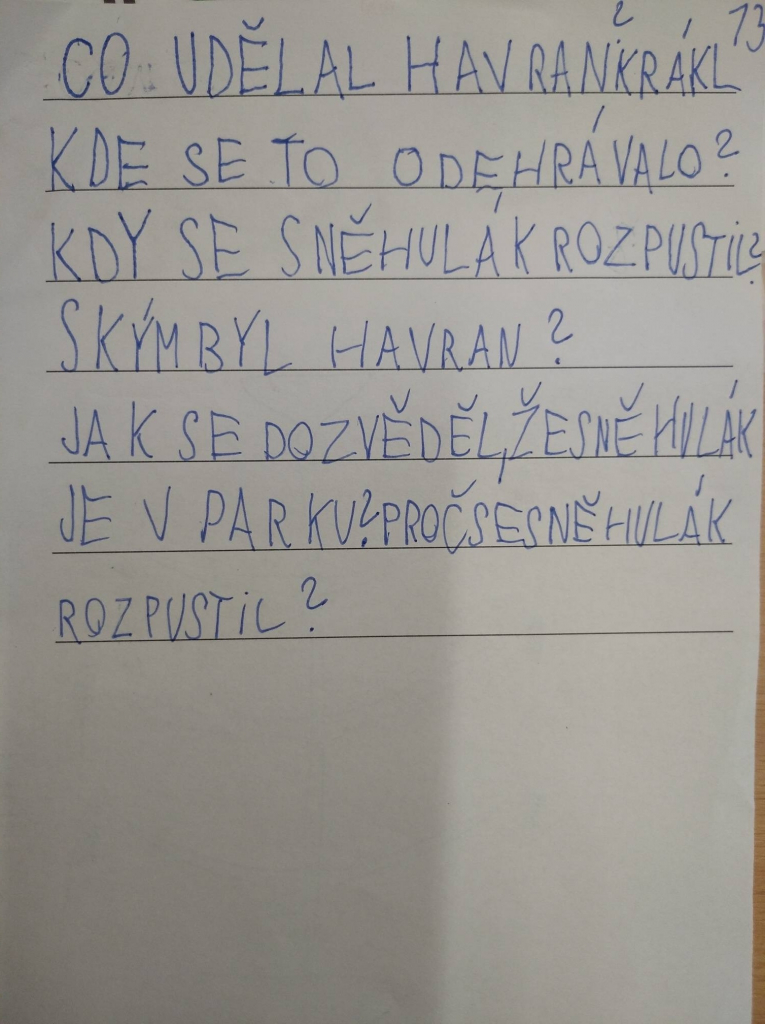 CO UDĚLAL HAVRAN? KRÁKL 13
KDE SE TO ODEHRÁVALO?
KDY SE SNĚHULÁK ROZPUSTIL?
SKÝM BYL HAVRAN?
JAK SE DOZVĚDĚL, ŽE SNĚHULÁK
JE V PARKU? PROČ SE SNĚHULÁK
ROZPUSTIL?